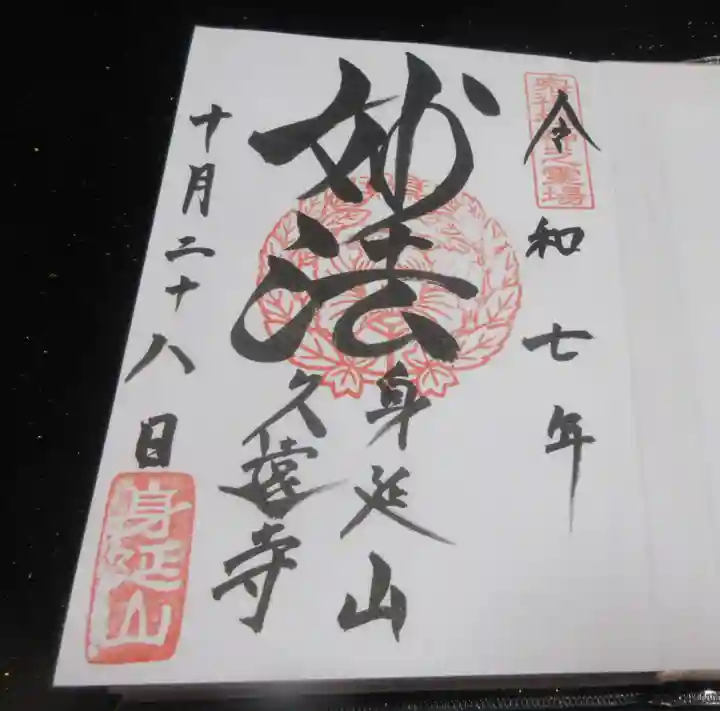 令和七年
妙法
身延山
久遠寺
十月二十八日
身延山